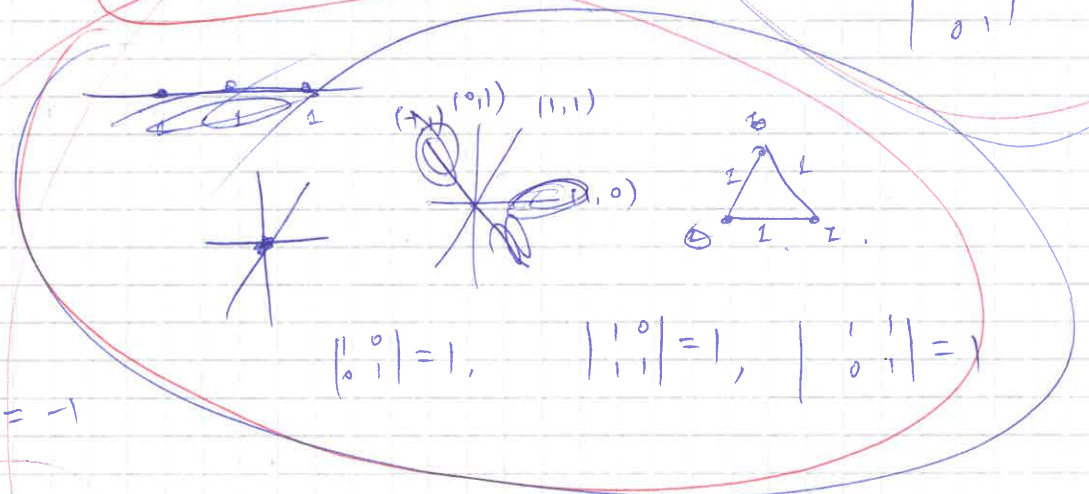 0 1
1 1
(-1,1) (0,1) (1,1)
(1,0)
1 1
1 1
|1 0; 0 1| = 1, |1 0; 1 1| = 1, |1 1; 0 1| = 1
= -1